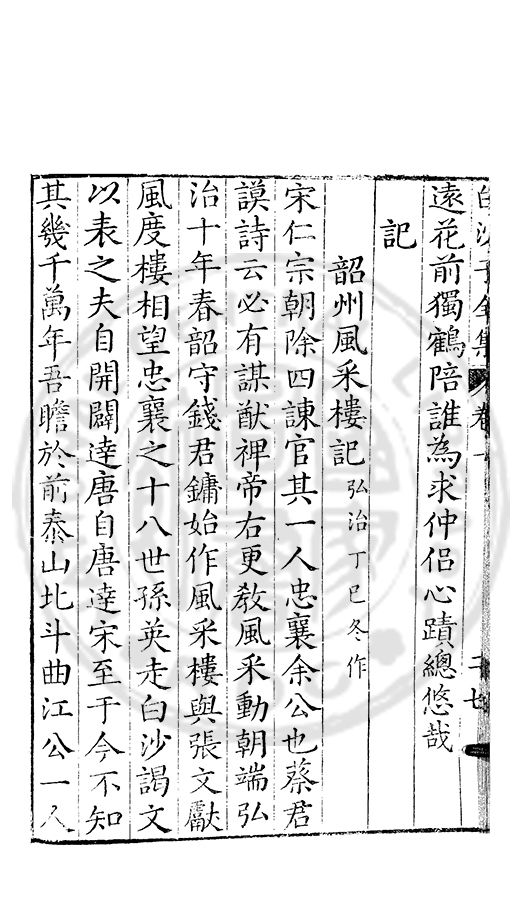 白沙子全集 卷一 二七
遠花前獨鶴陪誰為求仲侶心蹟總悠哉
記
韶州風采樓記 弘治丁巳冬作
宋仁宗朝除四諫官其一人忠襄余公也蔡君
謨詩云必有謀猷裨帝右更敎風采動朝端弘
治十年春韶守錢君鏞始作風采樓與張文獻
風度樓相望忠襄之十八世孫英走白沙謁文
以表之夫自開闢達唐自唐達宋至于今不知
其幾千萬年吾瞻於前泰山北斗曲江公一人